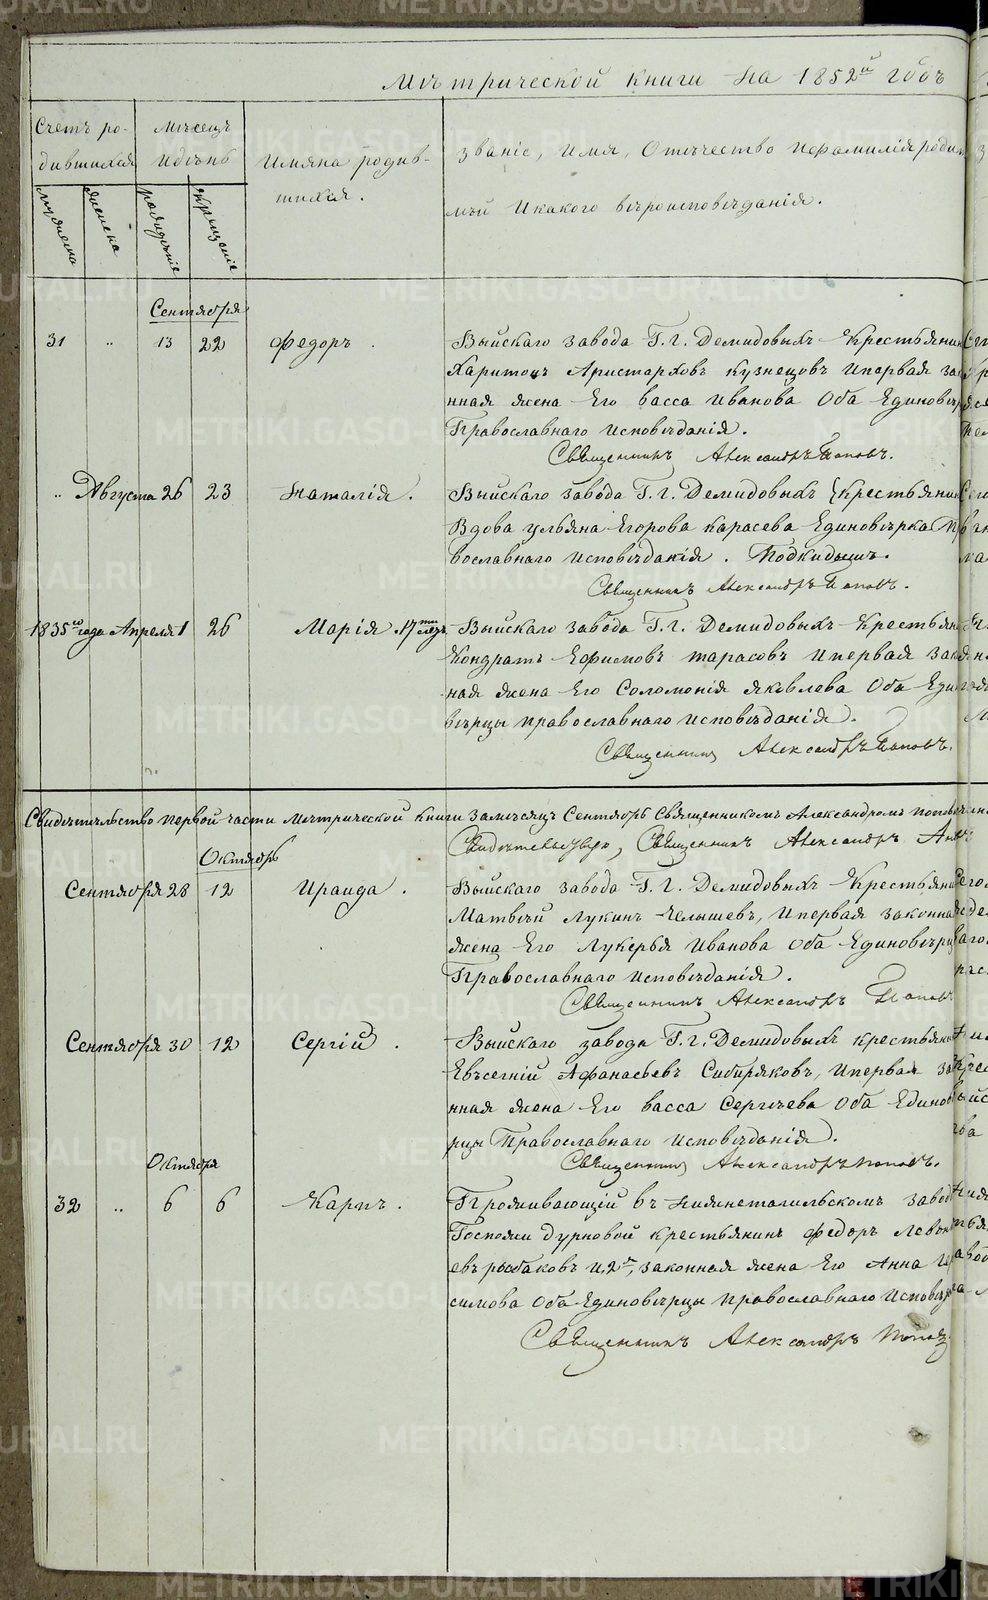 Метрической книги на 1852й годъ
Счетъ ро-
дившихся
Мѣсецъ
И день
Имяна родив-
шихся.
Званіе, Имя, Отечество и фамилія родит
лѣй И какого вѣроисповѣданія.
мужеска
женска
рожденіе
крещеніе
Сентября
31 " 13 22 Федоръ.
Выйскаго завода Г. г. Демидовыхъ Крестьянин
Харитонъ Аристарховъ Кузнецовъ Ипервая зако
нная жена Его Васса Иванова Оба Единовѣр
Православнаго Исповѣданія.
Священникъ Александръ Поповъ.
" Августа 26 23 Наталія.
Выйскаго завода Г. г. Демидовыхъ Крестьянин
Вдова Ульяна Егорова Карасева Единовѣрка Пр
вославнаго Исповѣданія. Подкидышъ.
Священникъ Александръ Поповъ.
1835го года Апреля 1 26 Марія 17ти лѣтъ
Выйскаго завода Г. г. Демидовыхъ Крестьян
Кондратъ Ефимовъ Тарасовъ Ипервая закон
ная жена Его Соломонія Яковлева Оба Един
вѣрцы Православнаго Исповѣданія.
Священникъ Александръ Поповъ.
Свидетельство первой части Метрической книги за месяцъ Сентябрь Священникомъ Александромъ Поповы
Свидетельствую, Священникъ Александръ
Октябрь
Сентября 28 12 Ираида.
Выйскаго завода Г. г. Демидовыхъ Крестьянин
Матвѣй Лукинъ Челышевъ, Ипервая законная
жена Его Лукерья Иванова Оба Единовѣрц
Православнаго Исповѣданія.
Священникъ Александръ Поповъ
Сентября 30 12 Сергій.
Выйскаго завода Г. г. Демидовыхъ крестьянин
Евсегній Афанасьевъ Сибиряковъ, Ипервая зако
нная жена Его Васса Сергѣева Оба Единовѣ
рцы Православнаго Исповѣданія.
Священникъ Александръ Поповъ.
Октября
32 " 6 6 Карпъ.
Проживающій въ Нижнетагильскомъ завод
Госпожи Дурновой крестьянинъ Федоръ Левонт
евъ Рыбаковъ И 2я, законная жена Его Анна Гера
симова Оба Единовѣрцы Православнаго Исповѣд
Священникъ Александръ Поповъ
METRIKI.GASO-URAL.RU